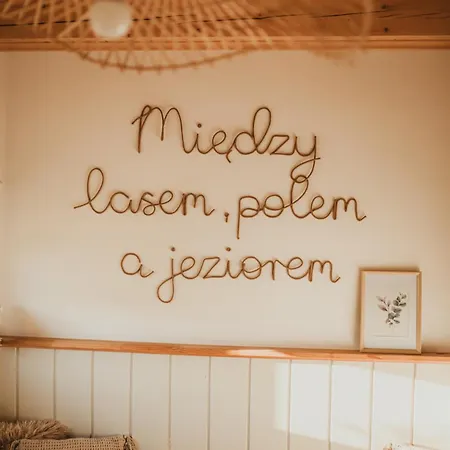 Między
lasem, polem
a jeziorem